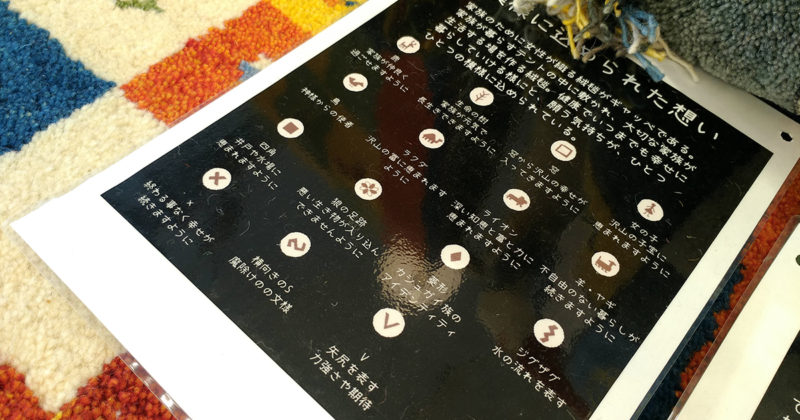 に込められた想い
家族のために女性が織る絨毯がギャッベである。
家族が暮らすテントの中に敷かれ、大切な家族が
生活する場を作る絨毯。健康でいつまでも幸せに
暮らしていける様にと、願う気持ちが、ひとつ
ひとつの模様に込められている。
鹿
家族が仲良く
過ごせますように
生命の樹
家族が元気で
長生きできますように
窓
窓から沢山の幸せが
入ってきますように
女の子
沢山の子宝に
恵まれますように
鳥
神様からの使者
ラクダ
沢山の富に恵まれます
ライオン
深い知恵と富と力に
恵まれますように
羊・ヤギ
不自由のない暮らしが
続きますように
四角
井戸や水場に
恵まれますように
狼の足跡
悪い生き物が入り込ん
できませんように
菱形
カシュガイ族の
アイデンティティ
ジグザグ
水の流れを表す
×
終わる事なく幸せが
続きますように
横向きのS
魔除けのの文様
V
矢尻を表す
力強さや期待